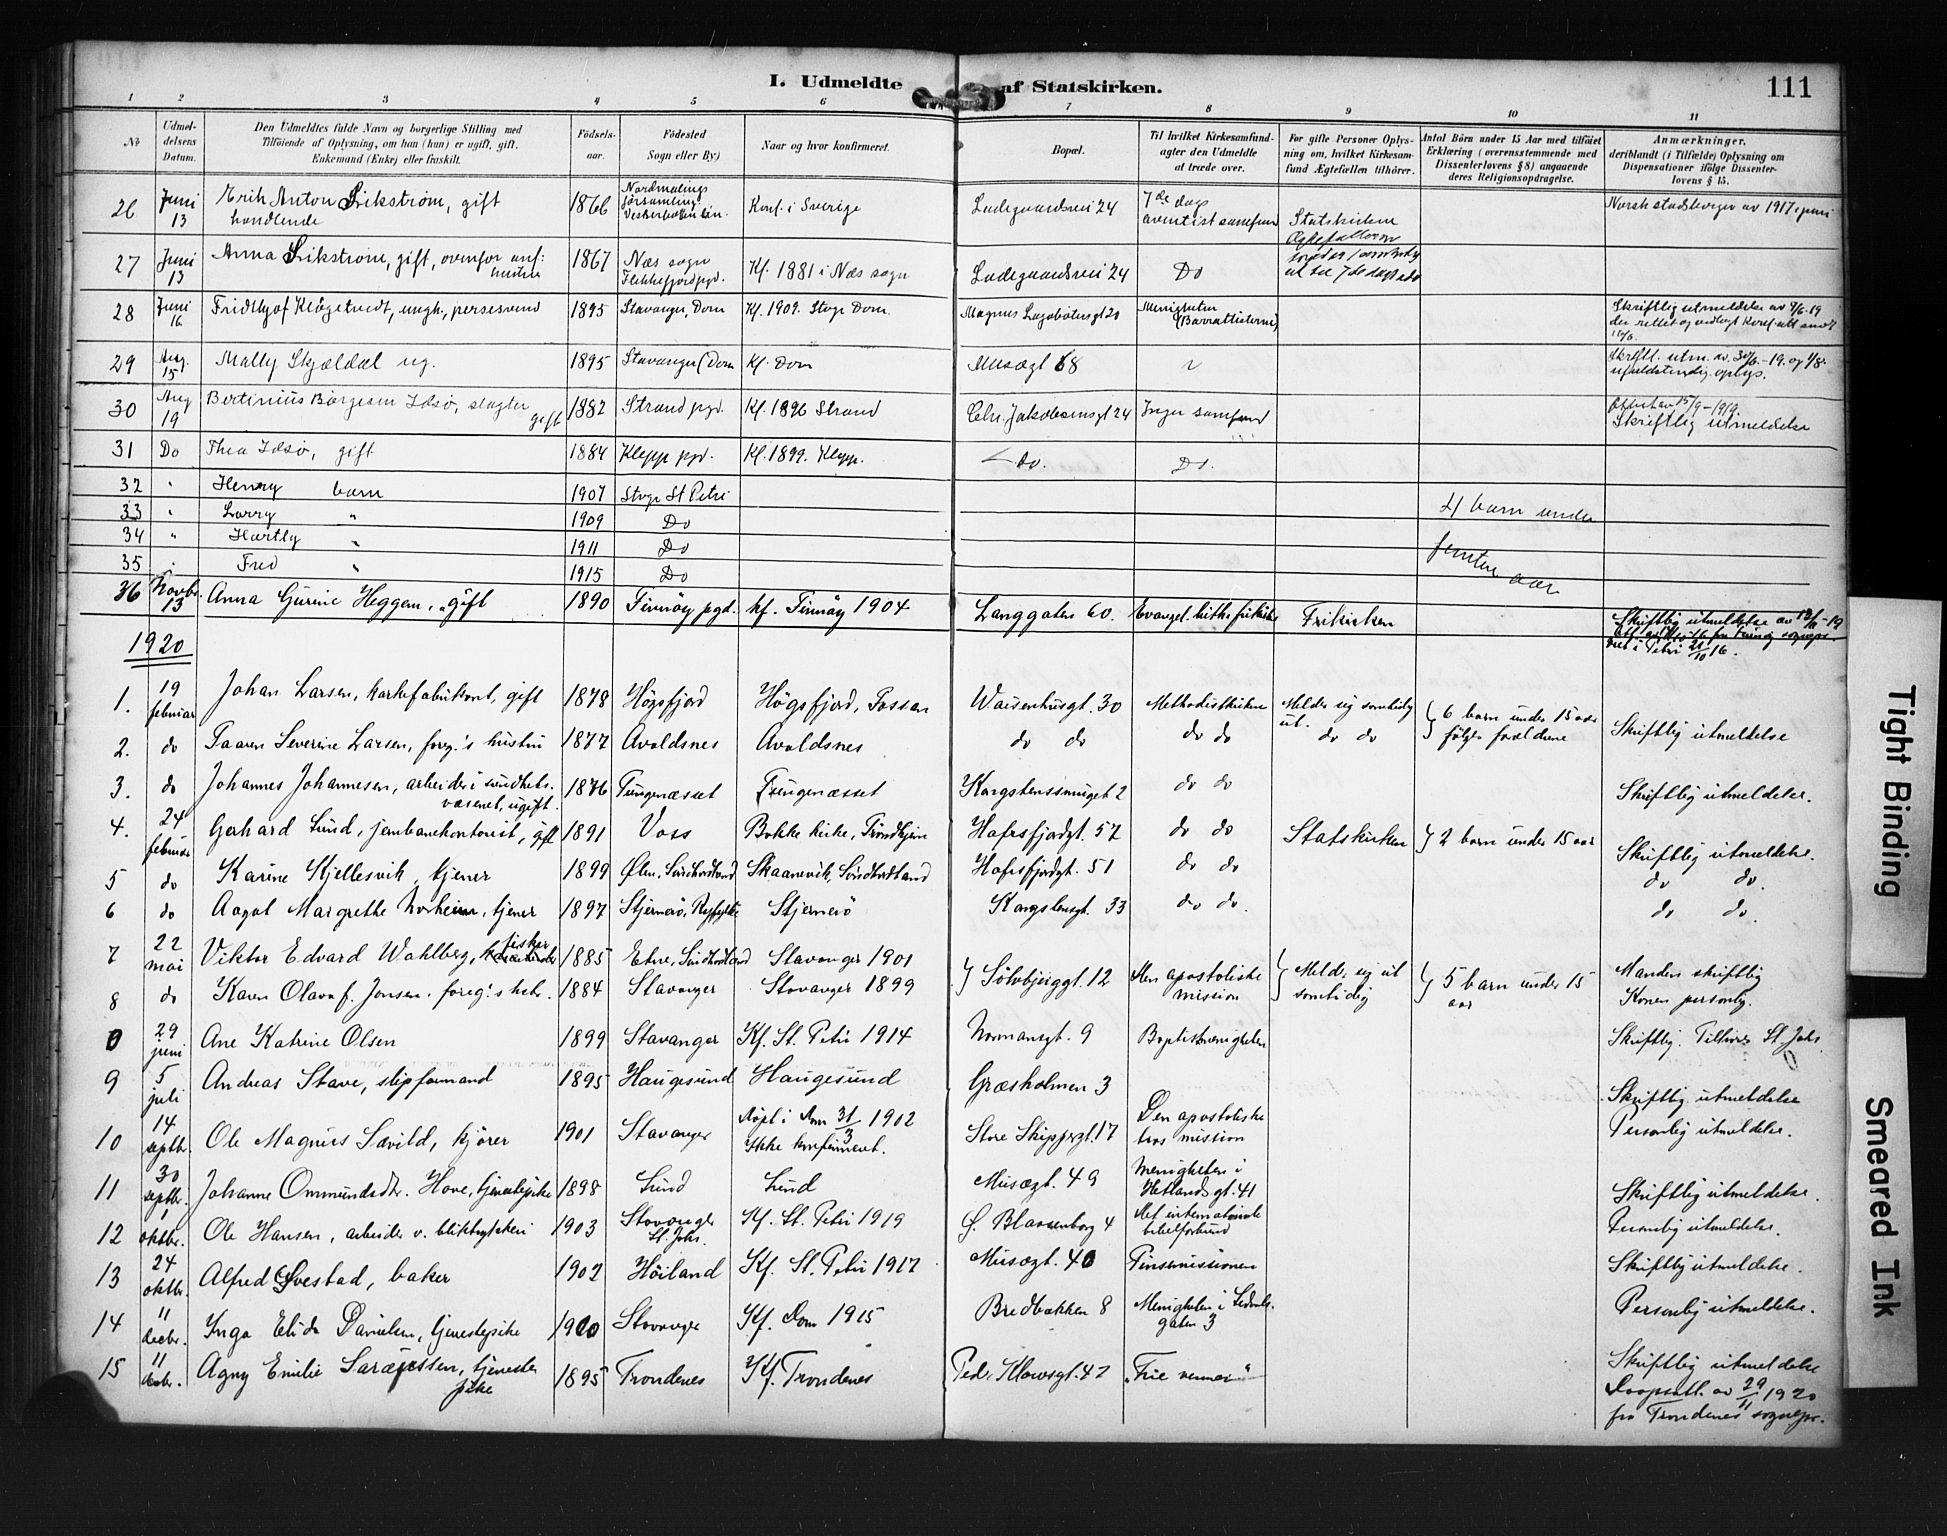 I. Udmeldte af Statskirken.
111
1 2 3 4 5 6 7 8 9 10 11
№
Udmeldelsens Datum.
Den Udmeldtes fulde Navn og borgerlige Stilling med
Tilføiende af Oplysning, om han (hun) er ugift, gift,
Enkemand (Enke) eller fraskilt.
Fødselsaar.
Fødested
Sogn eller By)
Naar og hvor konfirmeret.
Bopæl.
Til hvilket Kirkesamfund-
agter den Udmeldte
at træde over.
For gifte Personer Oplys-
ning om, hvilket Kirkesam-
fund Ægtefællen tilhører.
Antal Börn under 15 Aar med tilføiet
Erklæring (overensstemmende med
Dissenterlovens § 8) angaaende
deres Religionsopdragelse.
Anmærkninger,
deriblandt (i Tilfælde) Oplysning om
Dispensationer ifølge Dissenter-
lovens § 15.
26 Juni 13 Erik Anton Erikstrom, gift handlende 1866 Nordmalings församling Konf. i Sverige Ladegaardsvei 24 7de dags aventist samfund Statskirken Norsk statsborger av 1917
27 Juni 13 Anna Erikstrom, gift, ovenfor anf. hustru 1867 Næs sogn Flekkefjord pgd. Kf. 1881 i Næs sogn Ladegaardsvei 24 Do
28 Juni 16 Fridthjof Kløgetvedt, ungk., persesvend 1895 Stavanger, Dom Kf. 1909. Stvgr Dom. Magnus Lagabøtersgt 20 Menigheten (Barrattisterne) Skriftlig utmeldelse av 9/6 19
29 Aug. 15 Mally Skjældal ug. 1895 Stavanger (Dom Kf. Dom Musægt 68
30 Aug 19 Bertinius Børgesen Idsø, slagter gift 1882 Strand pgd. Kf. 1896 Strand Chr. Jakobsensgt 24 Ingen samfund Skriftlig utmeldelse
31 Do Thea Idsø, gift 1884 Klepp pgd. Kf. 1899. Klepp. do. Do.
32 " Henry barn 1907 Stvgr St Petri
33 " Larry " 1909 Do 4 barn under
34 " Hartly " 1911 Do
35 " Fred " 1915 Do femten aar
36 Novbr. 13 Anna Gurine Heggem, gift 1890 Finnøy pgd. Kf. Finnøy 1904 Langgaten 60. Evangel. luthr frikirke Frikirken Skriftlig utmeldelse av 13/11-19
1920
1. 19 februar Johan Larsen, kurvfabrikant, gift 1878 Høgsfjord Høgsfjord, Fossan Waisenhusgt. 30 Methodistkirken Melder sig samtidig ut. 6 barn under 15 aar
2. do Taaren Severine Larsen, foreg.'s hustru 1877 Avaldsnes Avaldsnes do do do do do do følger forældrene Skriftlig utmeldelse
3. do Johannes Johannesen, arbeider i sundhets-
væsenet, ugift. 1876 Tungenæsset Tungenæsset Kongstenssmuget 2 do do Skriftlig utmeldelse.
4. 24 februar Gerhard Lund, jernbanekontorist, gift 1891 Voss Bakke kirke, Trondhjem Hafrsfjordgt. 57 do do Statskirken 2 barn under 15 aar Skriftlig utmeldelse.
5 do Karine Kjellesvik, tjener 1899 Ølen, Søndhordland Skaanevik, Søndhordland Hafrsfjordgt. 51 do do do do.
6 do Aagot Margrethe Norheim, tjener 1897 Stjernerö, Ryfylke Stjernerö Kongstensgt. 33 do do. do do.
7 22 mai Viktor Edvard Wahlberg, fisker 1885 Etne, Søndhordland Stavanger 1901 Sølvbjerggt. 12 Den apostoliske mission Melder sig ut samtidig 5 barn under 15 aar Manden skriftlig
8 do Karen Olava f. Jonsen, foreg.'s hustr. 1884 Stavanger Stavanger 1899 Konen personlig.
0 29 juni Ane Katrine Olsen 1899 Stavanger Kf. St. Petri 1914 Normansgt. 9 Baptistmenigheten Skriftlig. Tilhører St. Johs
9 5 juli Andreas Stave, slipformand 1895 Haugesund Haugesund Græsholmen 3 Skriftlig utmeldelse
10 14 septbr. Ole Magnus Sævild, kjører 1901 Stavanger Døpt i Dom 31/3 1902
Ikke konfirmert. Store Skippergt. 17 Den apostoliske
tros mission Personlig utmeldelse.
11 30 septbr. Johanne Ommundsdtr. Hove, tjenestepike 1898 Lund Lund Musægt. 49 Menigheten i
Hetlandsgt. 41 Skriftlig utmeldelse.
12 1 oktbr. Ole Hansen, arbeider v. bliktrykkeri 1903 Stavanger St. Johs. Kf. St. Petri 1919 Ø. Blaasenborg 4 Det internationale
bibelforbund Personlig utmeldelse.
13 24 oktbr. Alfred Svestad, baker 1902 Høiland Kf. St. Petri 1917 Musægt. 40 Pinsemissionen Skriftlig utmeldelse.
14 11 decbr. Inga Elida Danielsen, tjenestepike 1900 Stavanger Kf. Dom 1915 Bredbakken 8 Menigheten i
gaten 3 Personlig utmeldelse.
15 11 decbr. Agny Emilie tjeneste
pike 1895 Trondenes Kf. Trondenes Ped. Klowsgt. 47 "Frie venner" Skriftlig utmeldelse
Daapsatt. av 29/11 1920
fra Trondenes sognepr.
Tight Binding
Smeared Ink